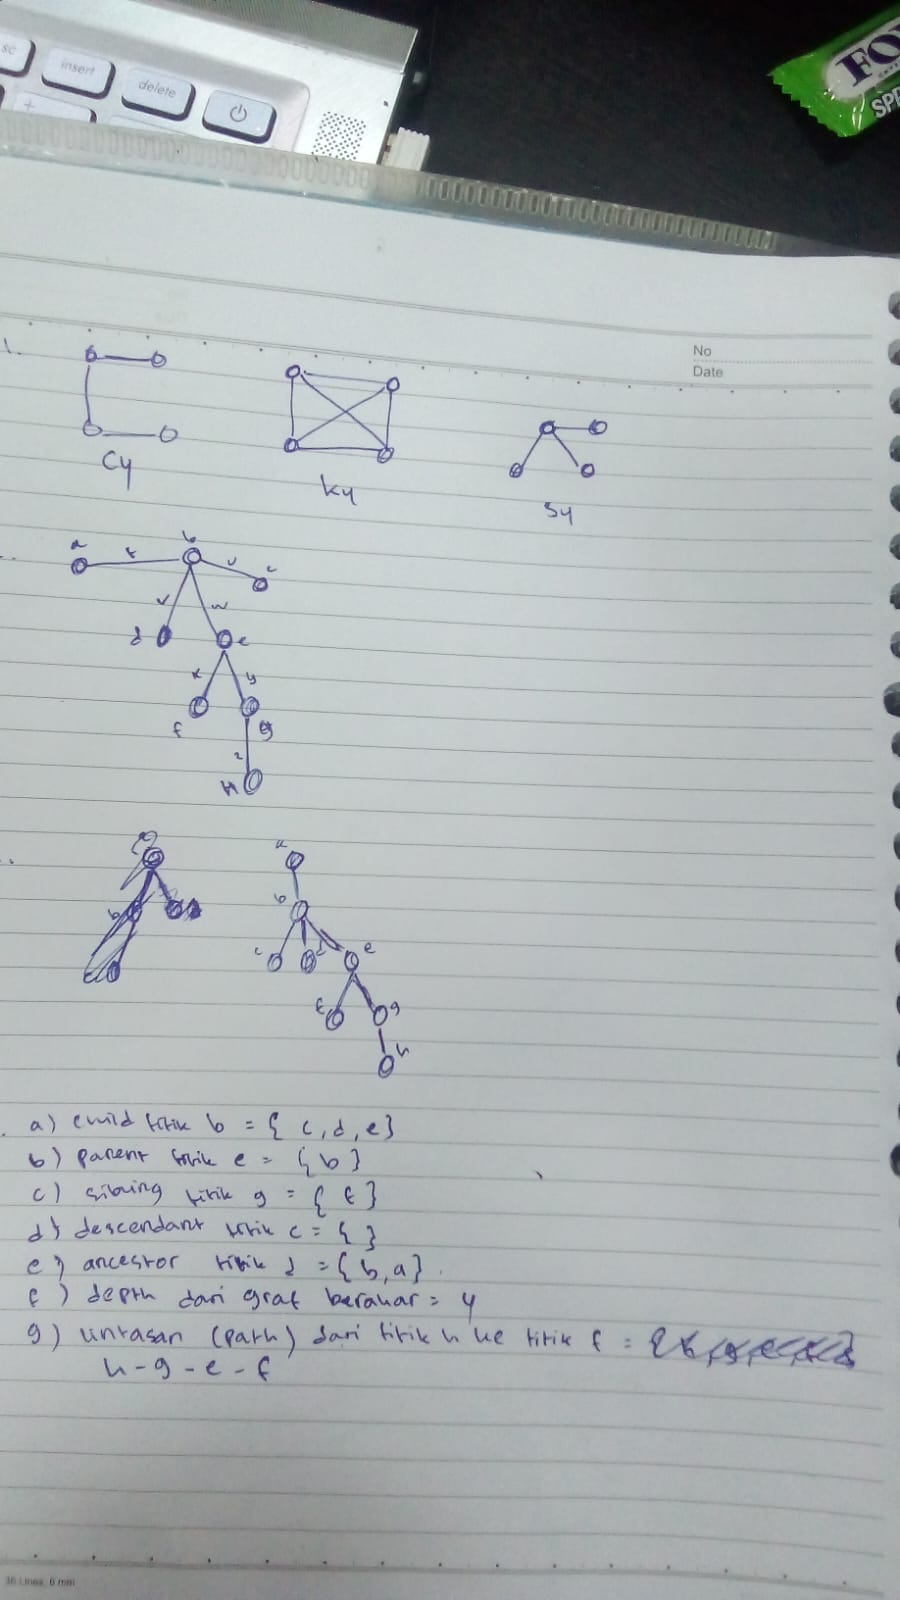 sc
insert
delete
+
FOX
SPR
No
Date
1.
C4
K4
S4
a
t
b
u
c
v
w
d
e
x
y
f
g
z
h
a
b
b
c
d
e
f
g
h
a) child titik b = { c, d, e }
b) parent titik e = { b }
c) sibling titik g = { f }
d) descendant titik c = { }
e) ancestor titik d = { b, a }
f) depth dari graf berakar = 4
g) lintasan (path) dari titik h ke titik f :
h - g - e - f
36 Lines, 6 mm